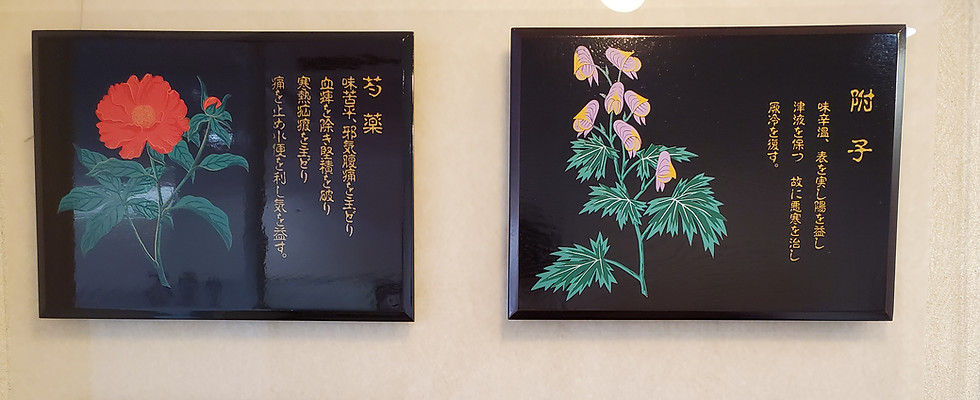 芍薬
味苦平、邪気腹痛を主どり
血痺を除き堅積を破り
寒熱疝瘕を主どり
痛を止め小便を利し気を益す。
附子
味辛温、表を実し陽を益し
津液を保つ 故に悪寒を治し
厥冷を復す。